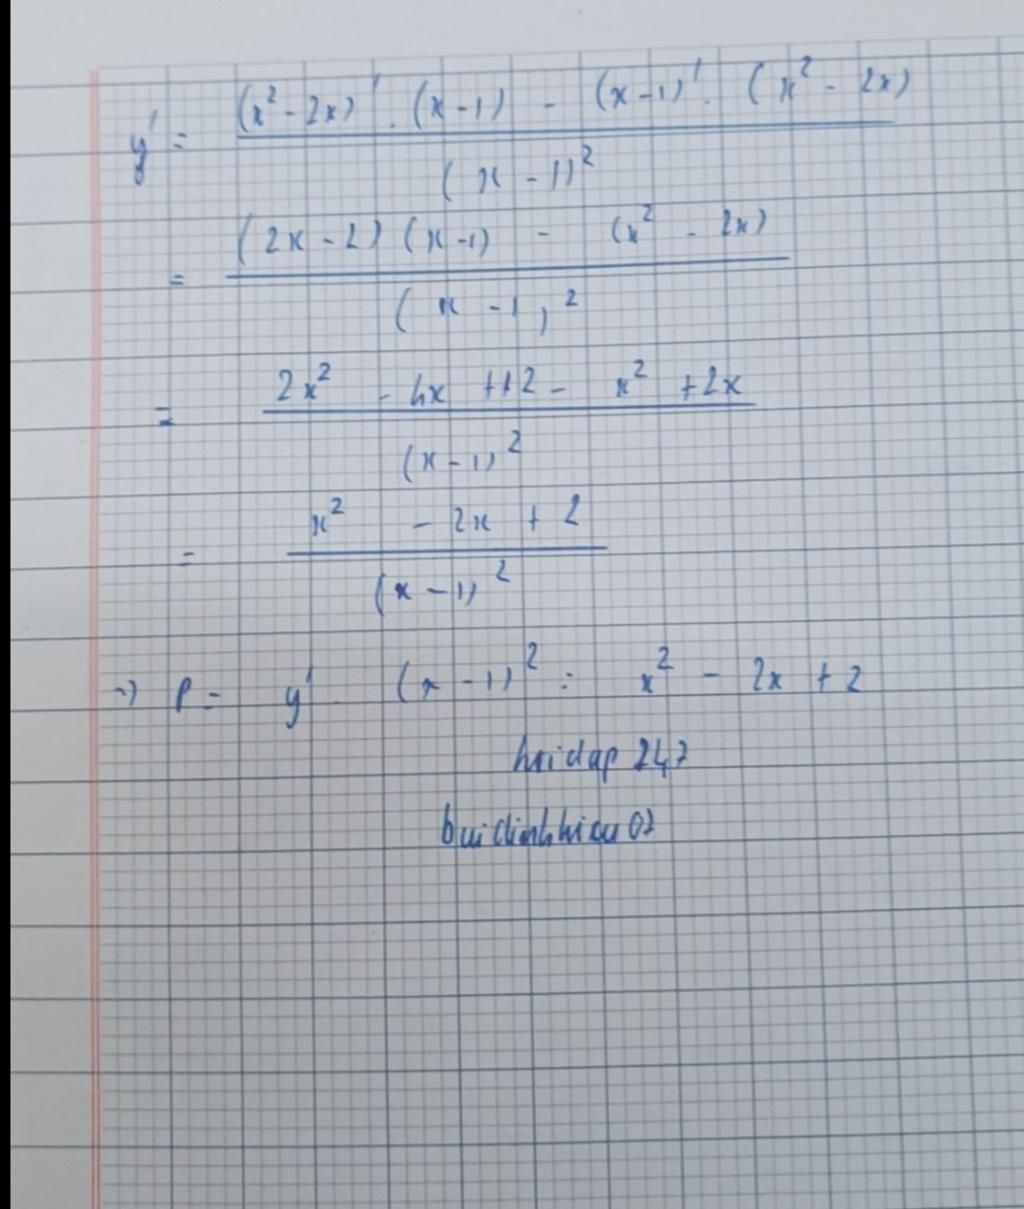 y' = \frac{(x^2 - 2x)' . (x - 1) - (x - 1)' . (x^2 - 2x)}{(x - 1)^2}
= \frac{(2x - 2)(x - 1) - (x^2 - 2x)}{(x - 1)^2}
= \frac{2x^2 - 4x + 2 - x^2 + 2x}{(x - 1)^2}
= \frac{x^2 - 2x + 2}{(x - 1)^2}
=> P = y' . (x - 1)^2 = x^2 - 2x + 2
hoidap 247
buidinhhieu 07